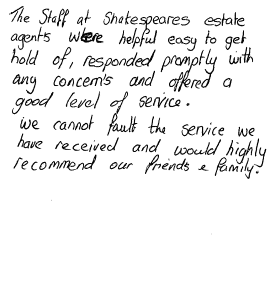 The Staff at Shakespeares estate
agents were helpful easy to get
hold of, responded promptly with
any concerns and offered a
good level of service.
We cannot fault the service we
have received and would highly
recommend our friends & family.